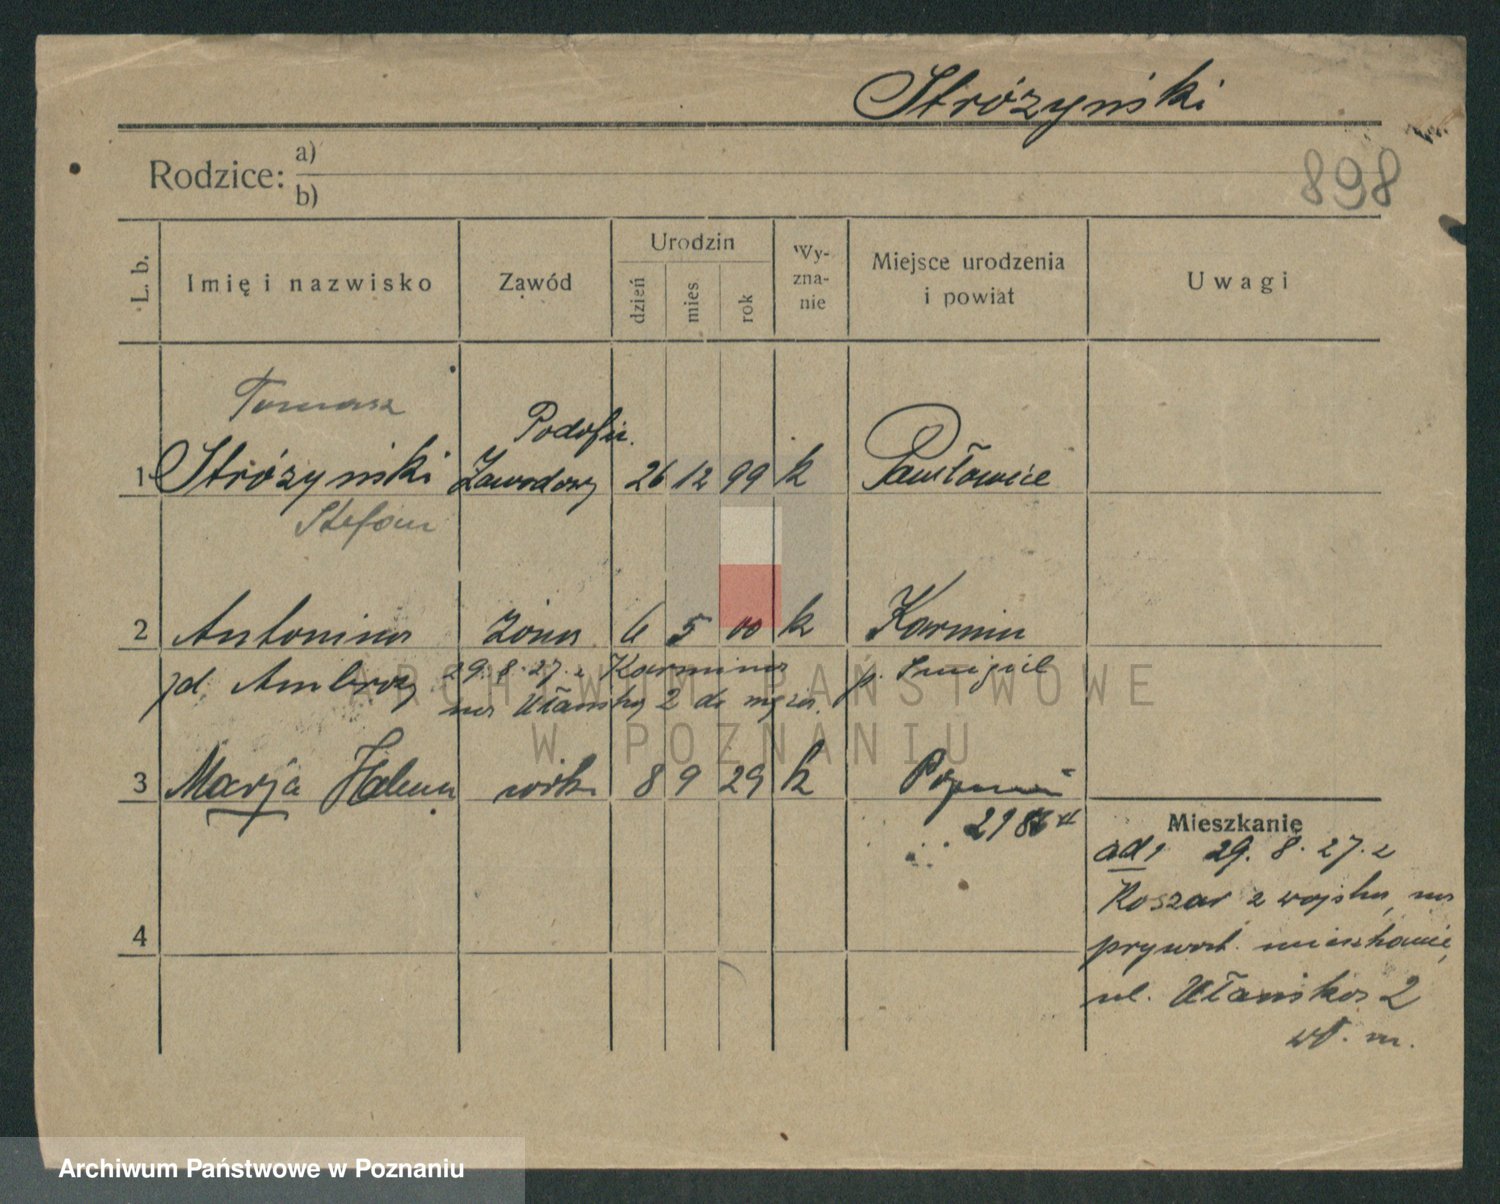 Stróżyński
898
Rodzice: a)
b)
L. b.
Imię i nazwisko
Zawód
Urodzin
dzień
mies.
rok
Wy-
zna-
nie
Miejsce urodzenia
i powiat
Uwagi
Tomasz
Podofic.
1 Stróżyński Zawodowy 26 12 99 k Pawłowice
Stefan
2 Antonina żona 6 5 00 k Karmin
zd. Ambroży 29.8.27. z Karmina p. Śmigiel
na Ułańską 2 do męża.
3 Marja Helena 8 9 29 k Poznań
Mieszkanie
ad 1 29. 8. 27. z
Koszar z wojska, na
prywat. mieszkanie,
ul. Ułańska 2
wł. m.
4
ARCHIWUM PAŃSTWOWE
W POZNANIU
Archiwum Państwowe w Poznaniu